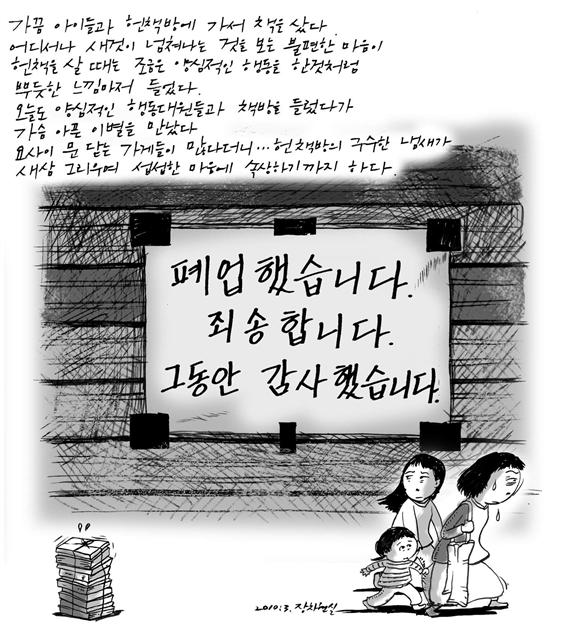 가끔 아이들과 헌책방에 가서 책을 샀다.
어디서나 새것이 넘쳐나는 것을 보는 불편한 마음이
헌책을 살 때는 조금은 양심적인 행동을 한것처럼
뿌듯한 느낌마저 들었다.
오늘도 양심적인 행동대원들과 책방을 들렀다가
가슴 아픈 이별을 만났다
요사이 문 닫는 가게들이 많다더니...헌 책방의 구수한 냄새가
새삼 그리우며 섭섭한 마음에 속상하기까지 하다.
폐업했습니다.
죄송합니다.
그동안 감사했습니다.
2010.3. 장차현실